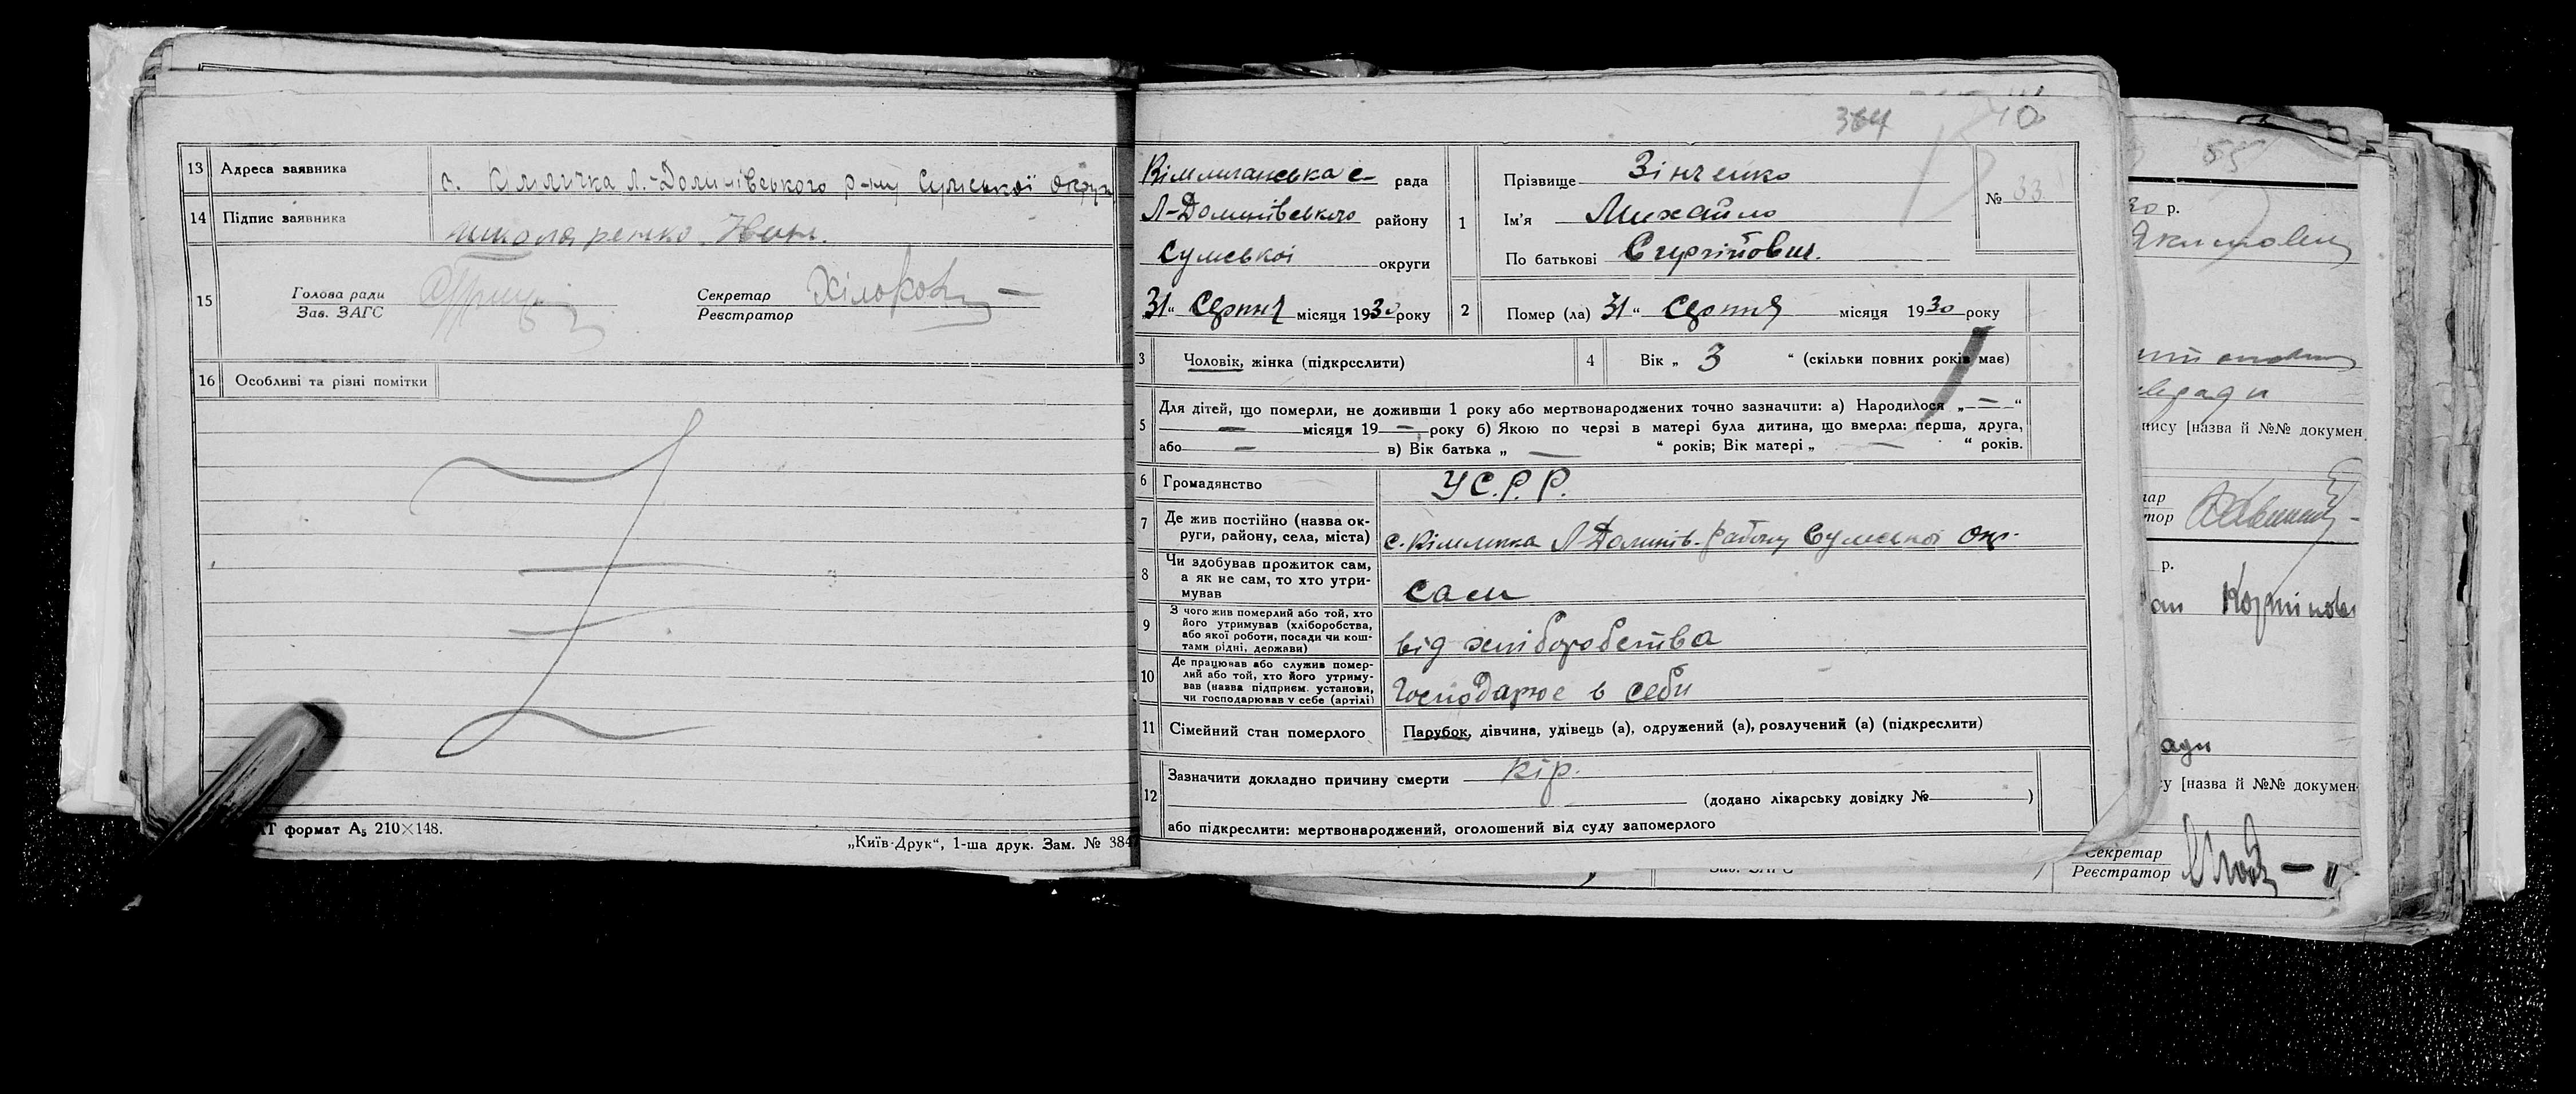 13 Адреса заявника с. Кіммичка Л.-Долинівського р-ну Сумської округи
14 Підпис заявника Николаренко Иван.
15 Голова ради
Зав. ЗАГС
Секретар
Реєстратор
16 Особливі та різні помітки
формат А5 210×148.
„Київ-Друк“, 1-ша друк. Зам. № 384
364 10
рада
Л-Долинівського району
Сумської округи
31 “ Серпня місяця 1930 року
1 Прізвище Зінченко
Ім’я Михайло
По батькові
№ 33
2 Помер (ла) 31 “ Серпня місяця 1930 року
3 Чоловік, жінка (підкреслити)
4 Вік „ 3 “ (скільки повних років має)
5 Для дітей, що померли, не доживши 1 року або мертвонароджених точно зазначити: а) Народилося „ — “
— місяця 19 — року б) Якою по черзі в матері була дитина, що вмерла: перша, друга,
або — в) Вік батька „ — “ років; Вік матері „ — “ років.
6 Громадянство У С.Р.Р.
7 Де жив постійно (назва ок-
руги, району, села, міста) с. Кіммичка Л-Долинів. району Сумської окр.
8 Чи здобував прожиток сам,
а як не сам, то хто утри-
мував сам
9 З чого жив померлий або той, хто
його утримував (хліборобства,
або якої роботи, посади чи кош-
тами рідні, держави) від хліборобства
10 Де працював або служив помер-
лий або той, хто його утриму-
вав (назва підприєм. установи,
чи господарював у себе (артілі) Господарює в себи
11 Сімейний стан померлого Парубок, дівчина, удівець (а), одружений (а), розлучений (а) (підкреслити)
12 Зазначити докладно причину смерти кір.
(додано лікарську довідку № )
або підкреслити: мертвонароджений, оголошений від суду запомерлого
55
30 р.
пису [назва й №№ докумен
р.
ади
су [назва й №№ докумен-
Секретар
Реєстратор